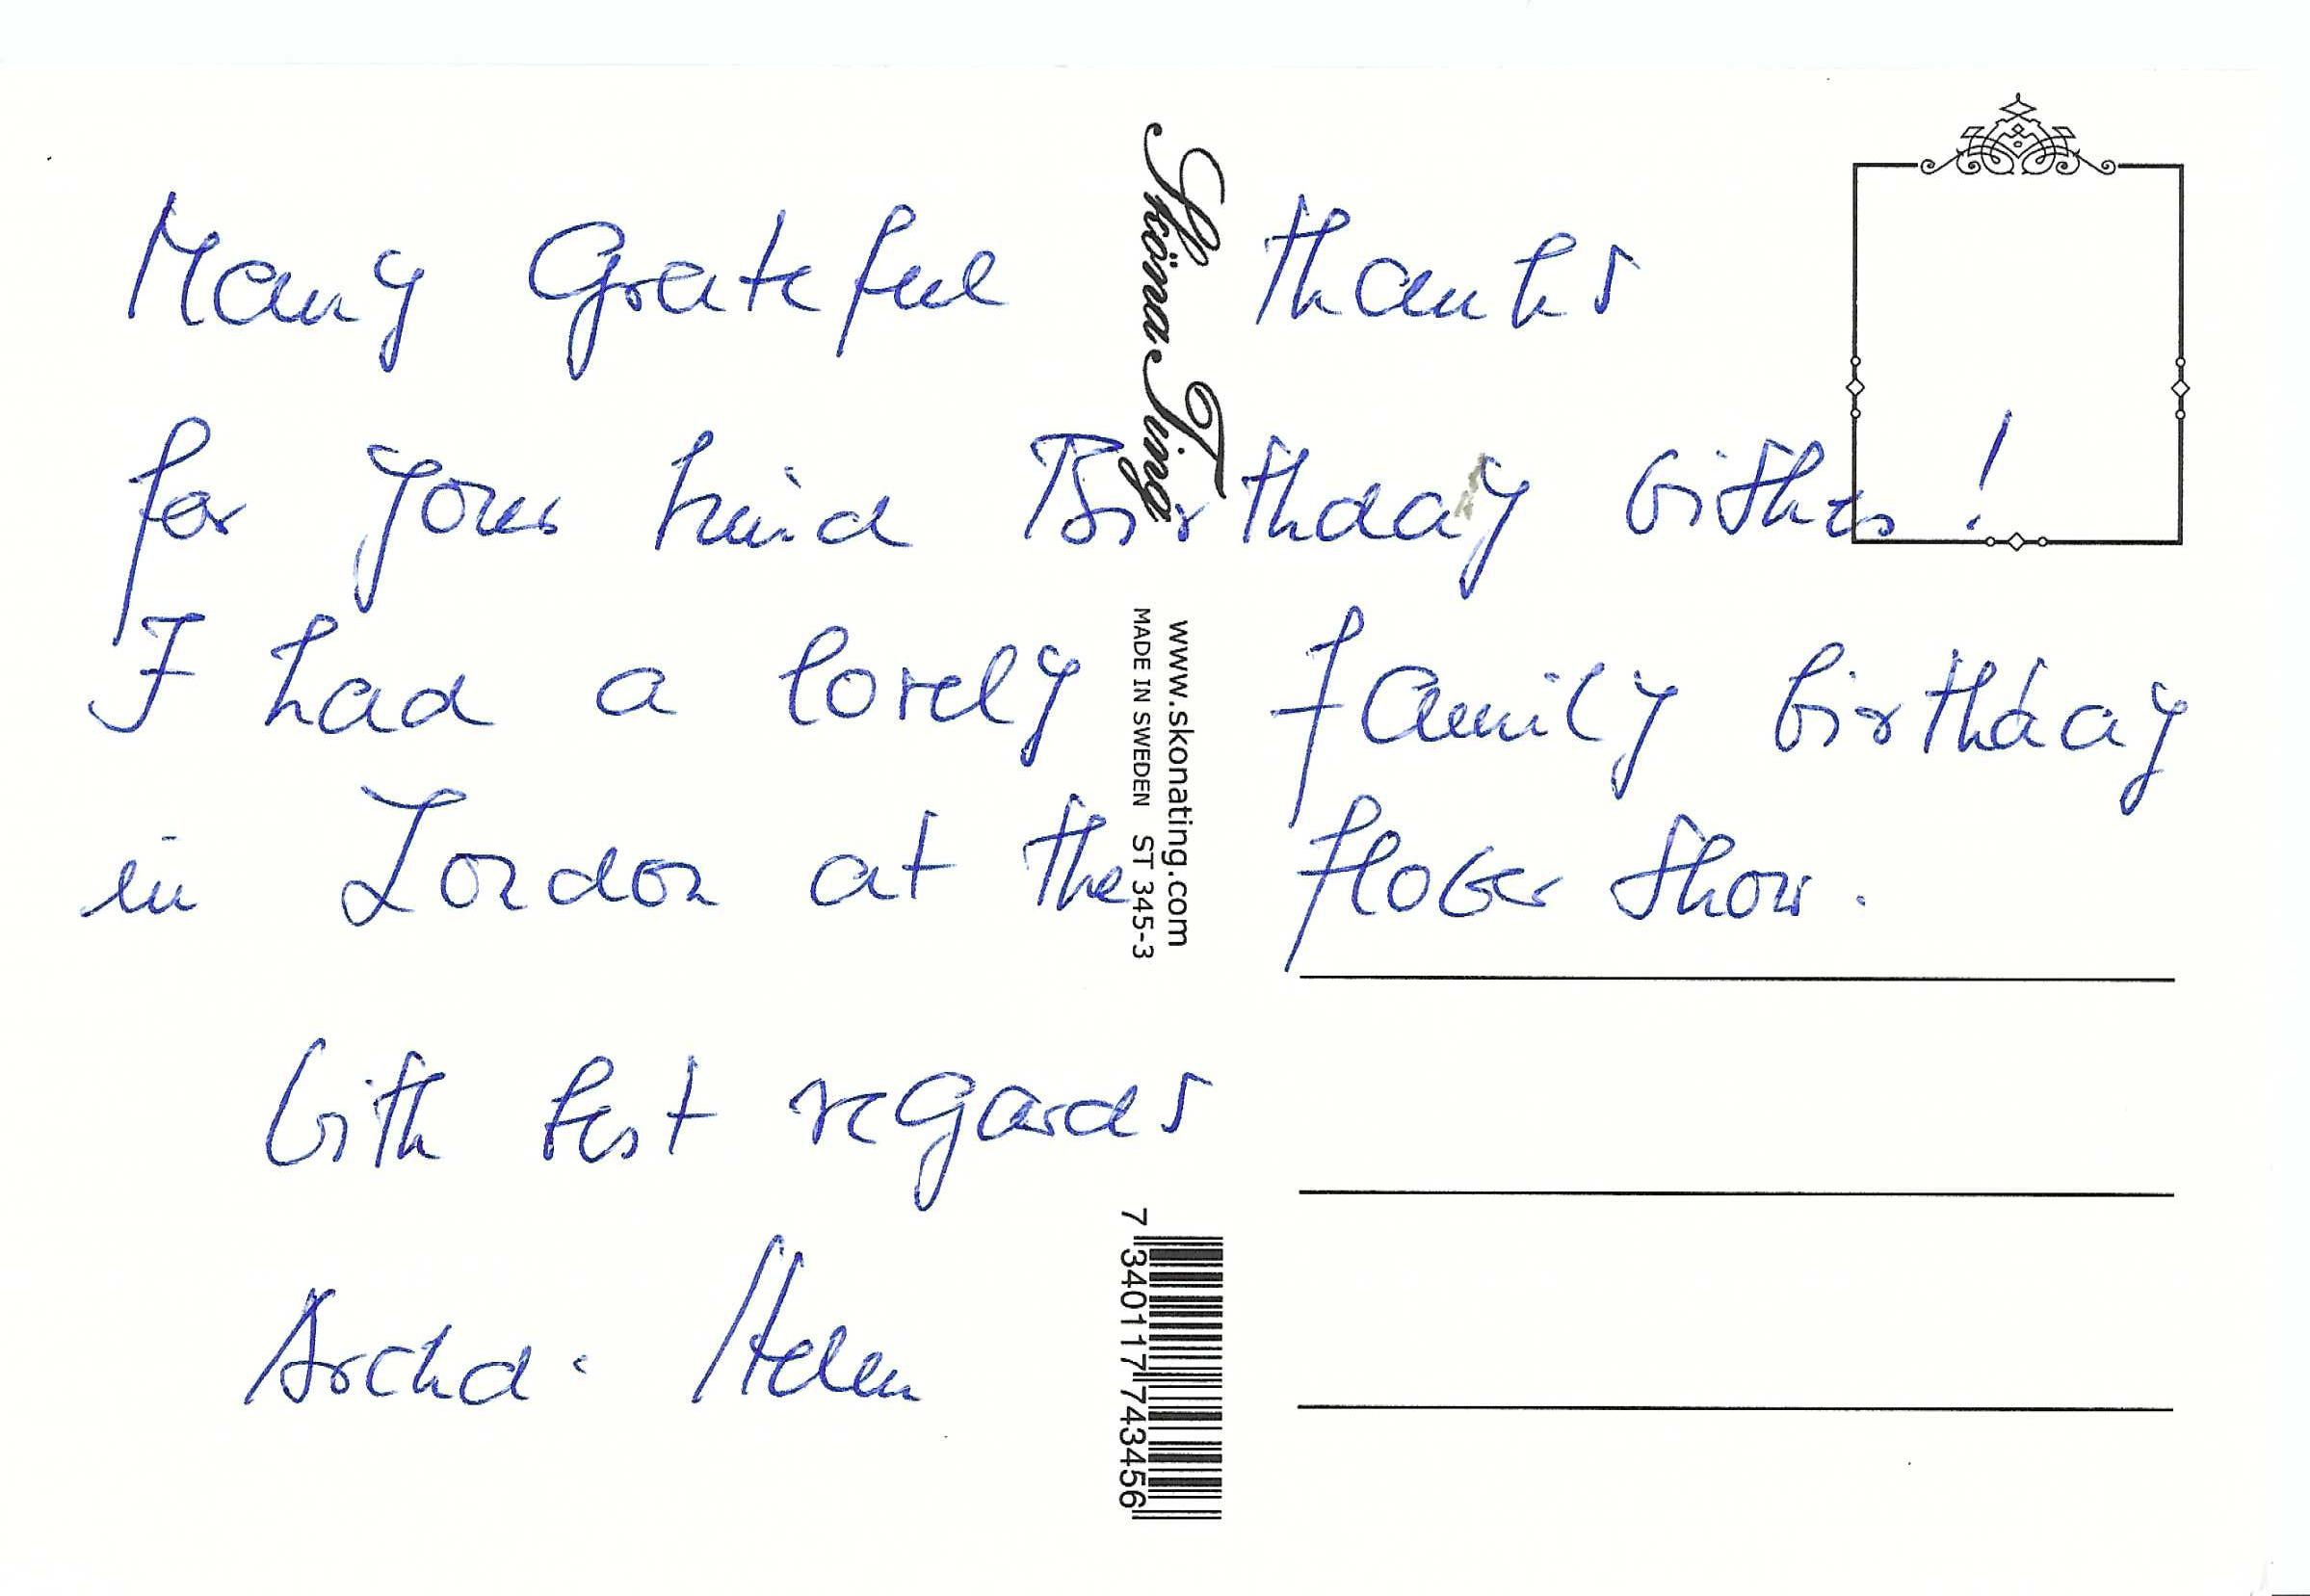 Many Grateful thanks
for your kind Birthday wishes!
I had a lovely family birthday
in London at the flower show.
with best regards
Archd. Helen
Sköna Ting
www.skonating.com
MADE IN SWEDEN ST 345-3
7 340117 743456